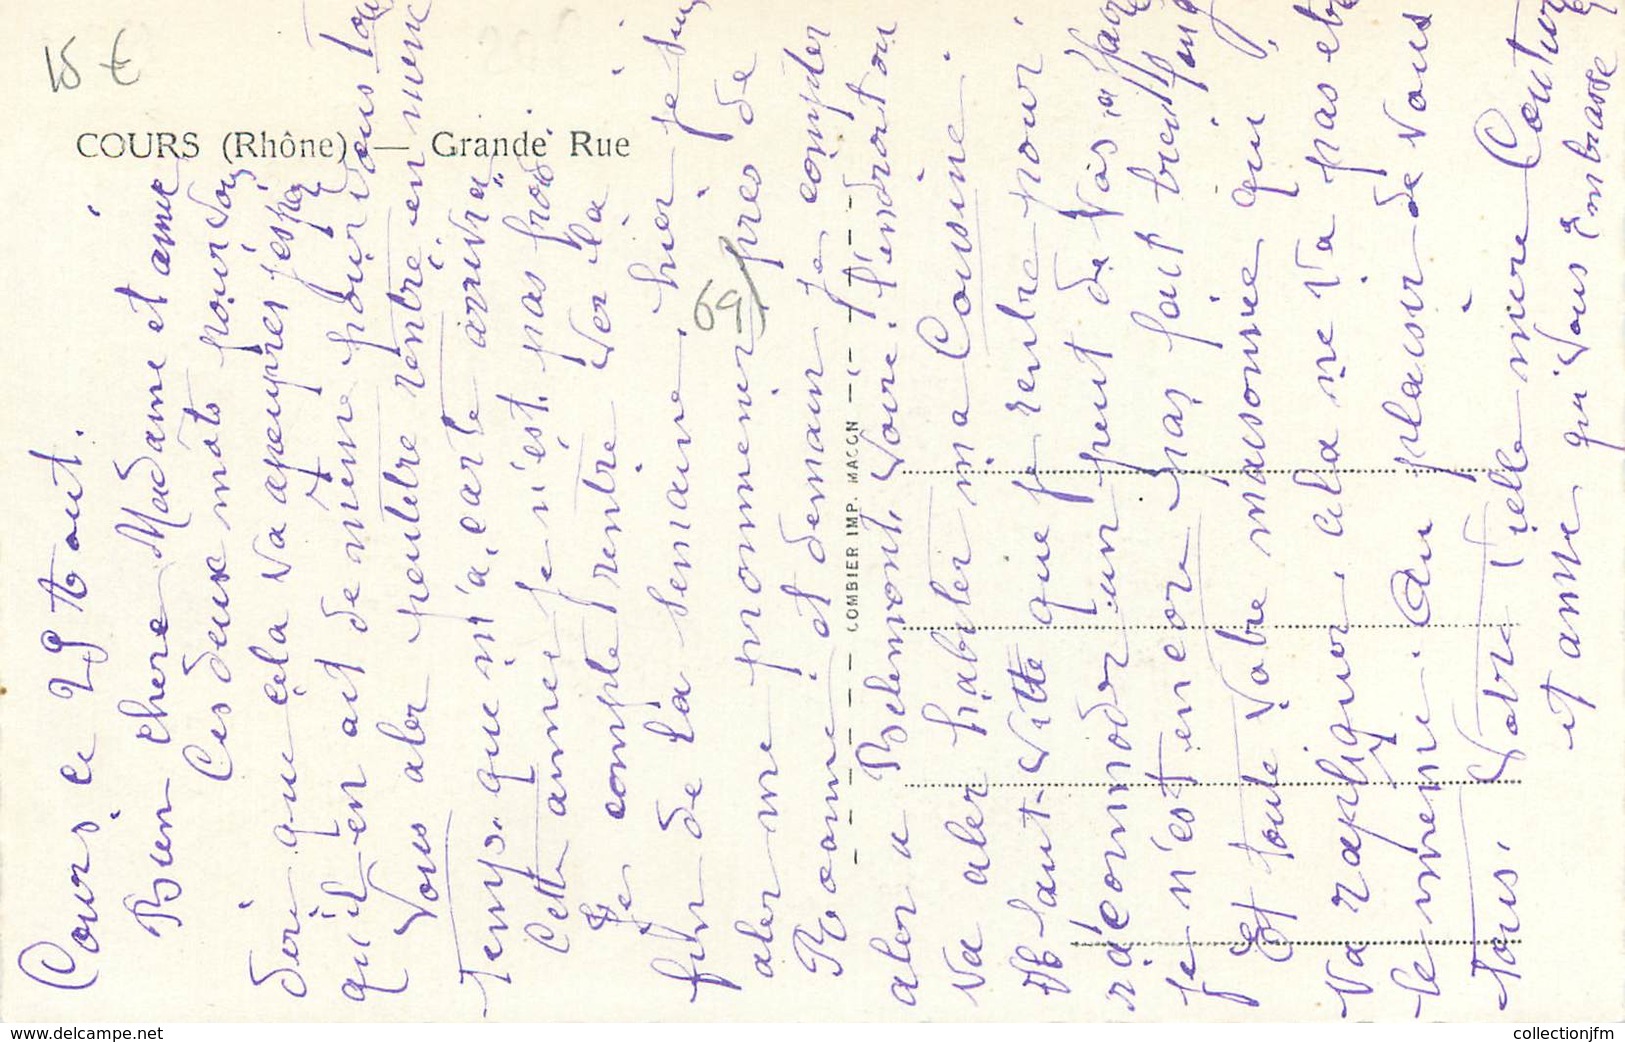 15 €
COURS (Rhône) — Grande Rue
69
COMBIER IMP. MACON
Cours le 29 Aout.
Bien chere Madame et amie
Ces deux mots pour vous
dire que cela va apeupres j'espere
qu'il en ait de même pour vous tous
Vous aler peutetre rentre en
temps. que m'a carte arriver
Cette annee je n'est pas
Je compte rentre ver la
fin de la semaine. hier je suis
aler me prommener pres de
Roanne. et demain je compter
aler a Belemont. voire. l'endroit ou
va aler habiter ma Cousine.
Il faut vitte que je rentre pour
racommodr un peut de
je n'est encore pas fait
Et toute votre maisonnée qui
va rapliquer. cela ne va pas etre
le meme. Au plaisir de vous
tous. Votre vielle mere Couturier
et amie qui vous Embrasse
www.delcampe.net
collectionjfm